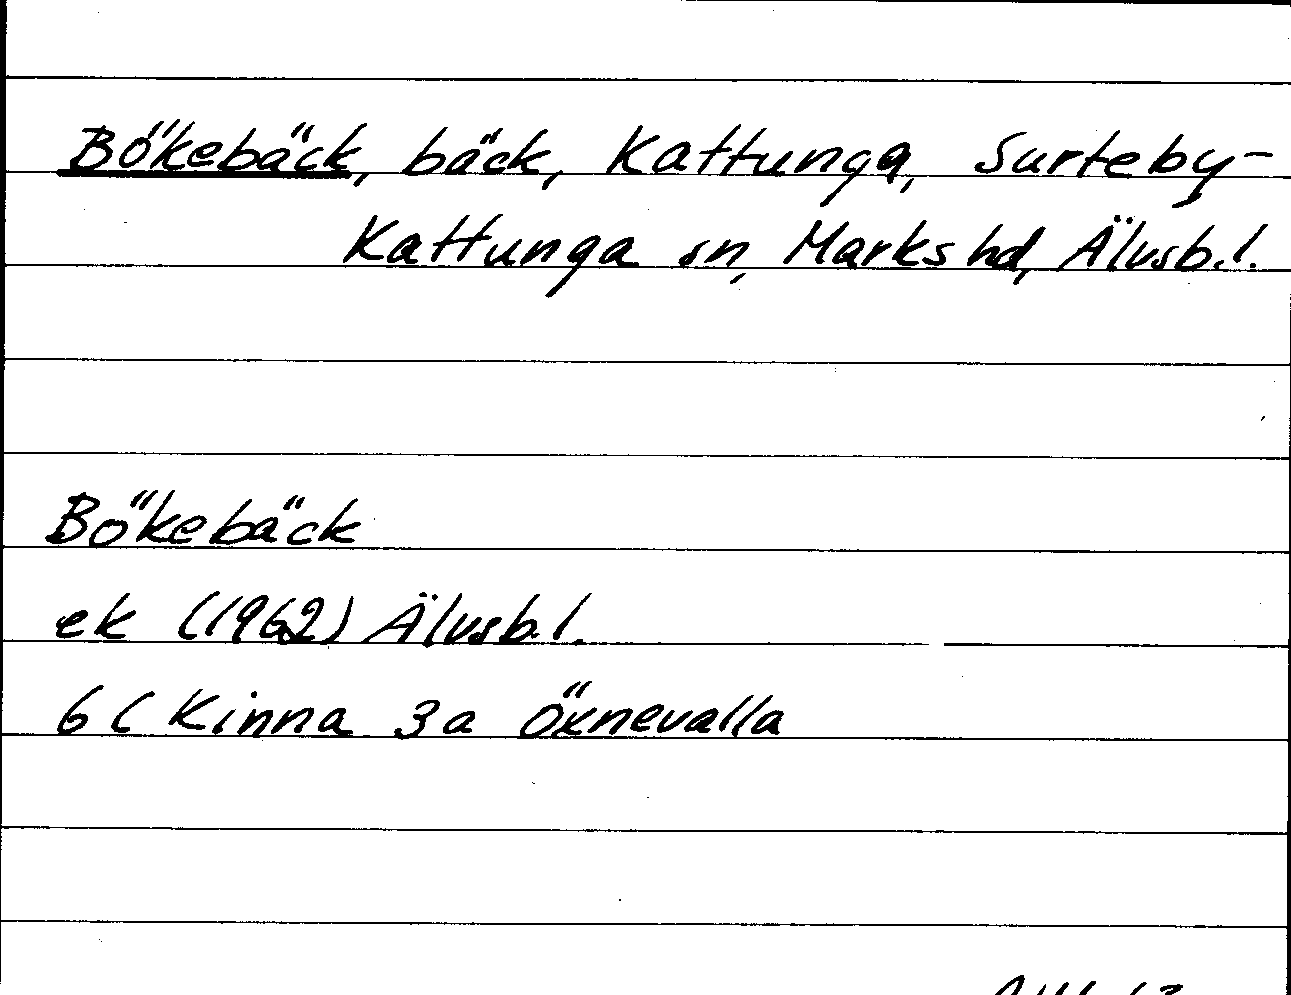 Bökebäck, bäck, Kattunga, Surteby-
Kattunga sn, Marks hd, Älvsb.l.
Bökebäck
ek (1962) Älvsb.l.
6 C Kinna 3a Öxnevalla